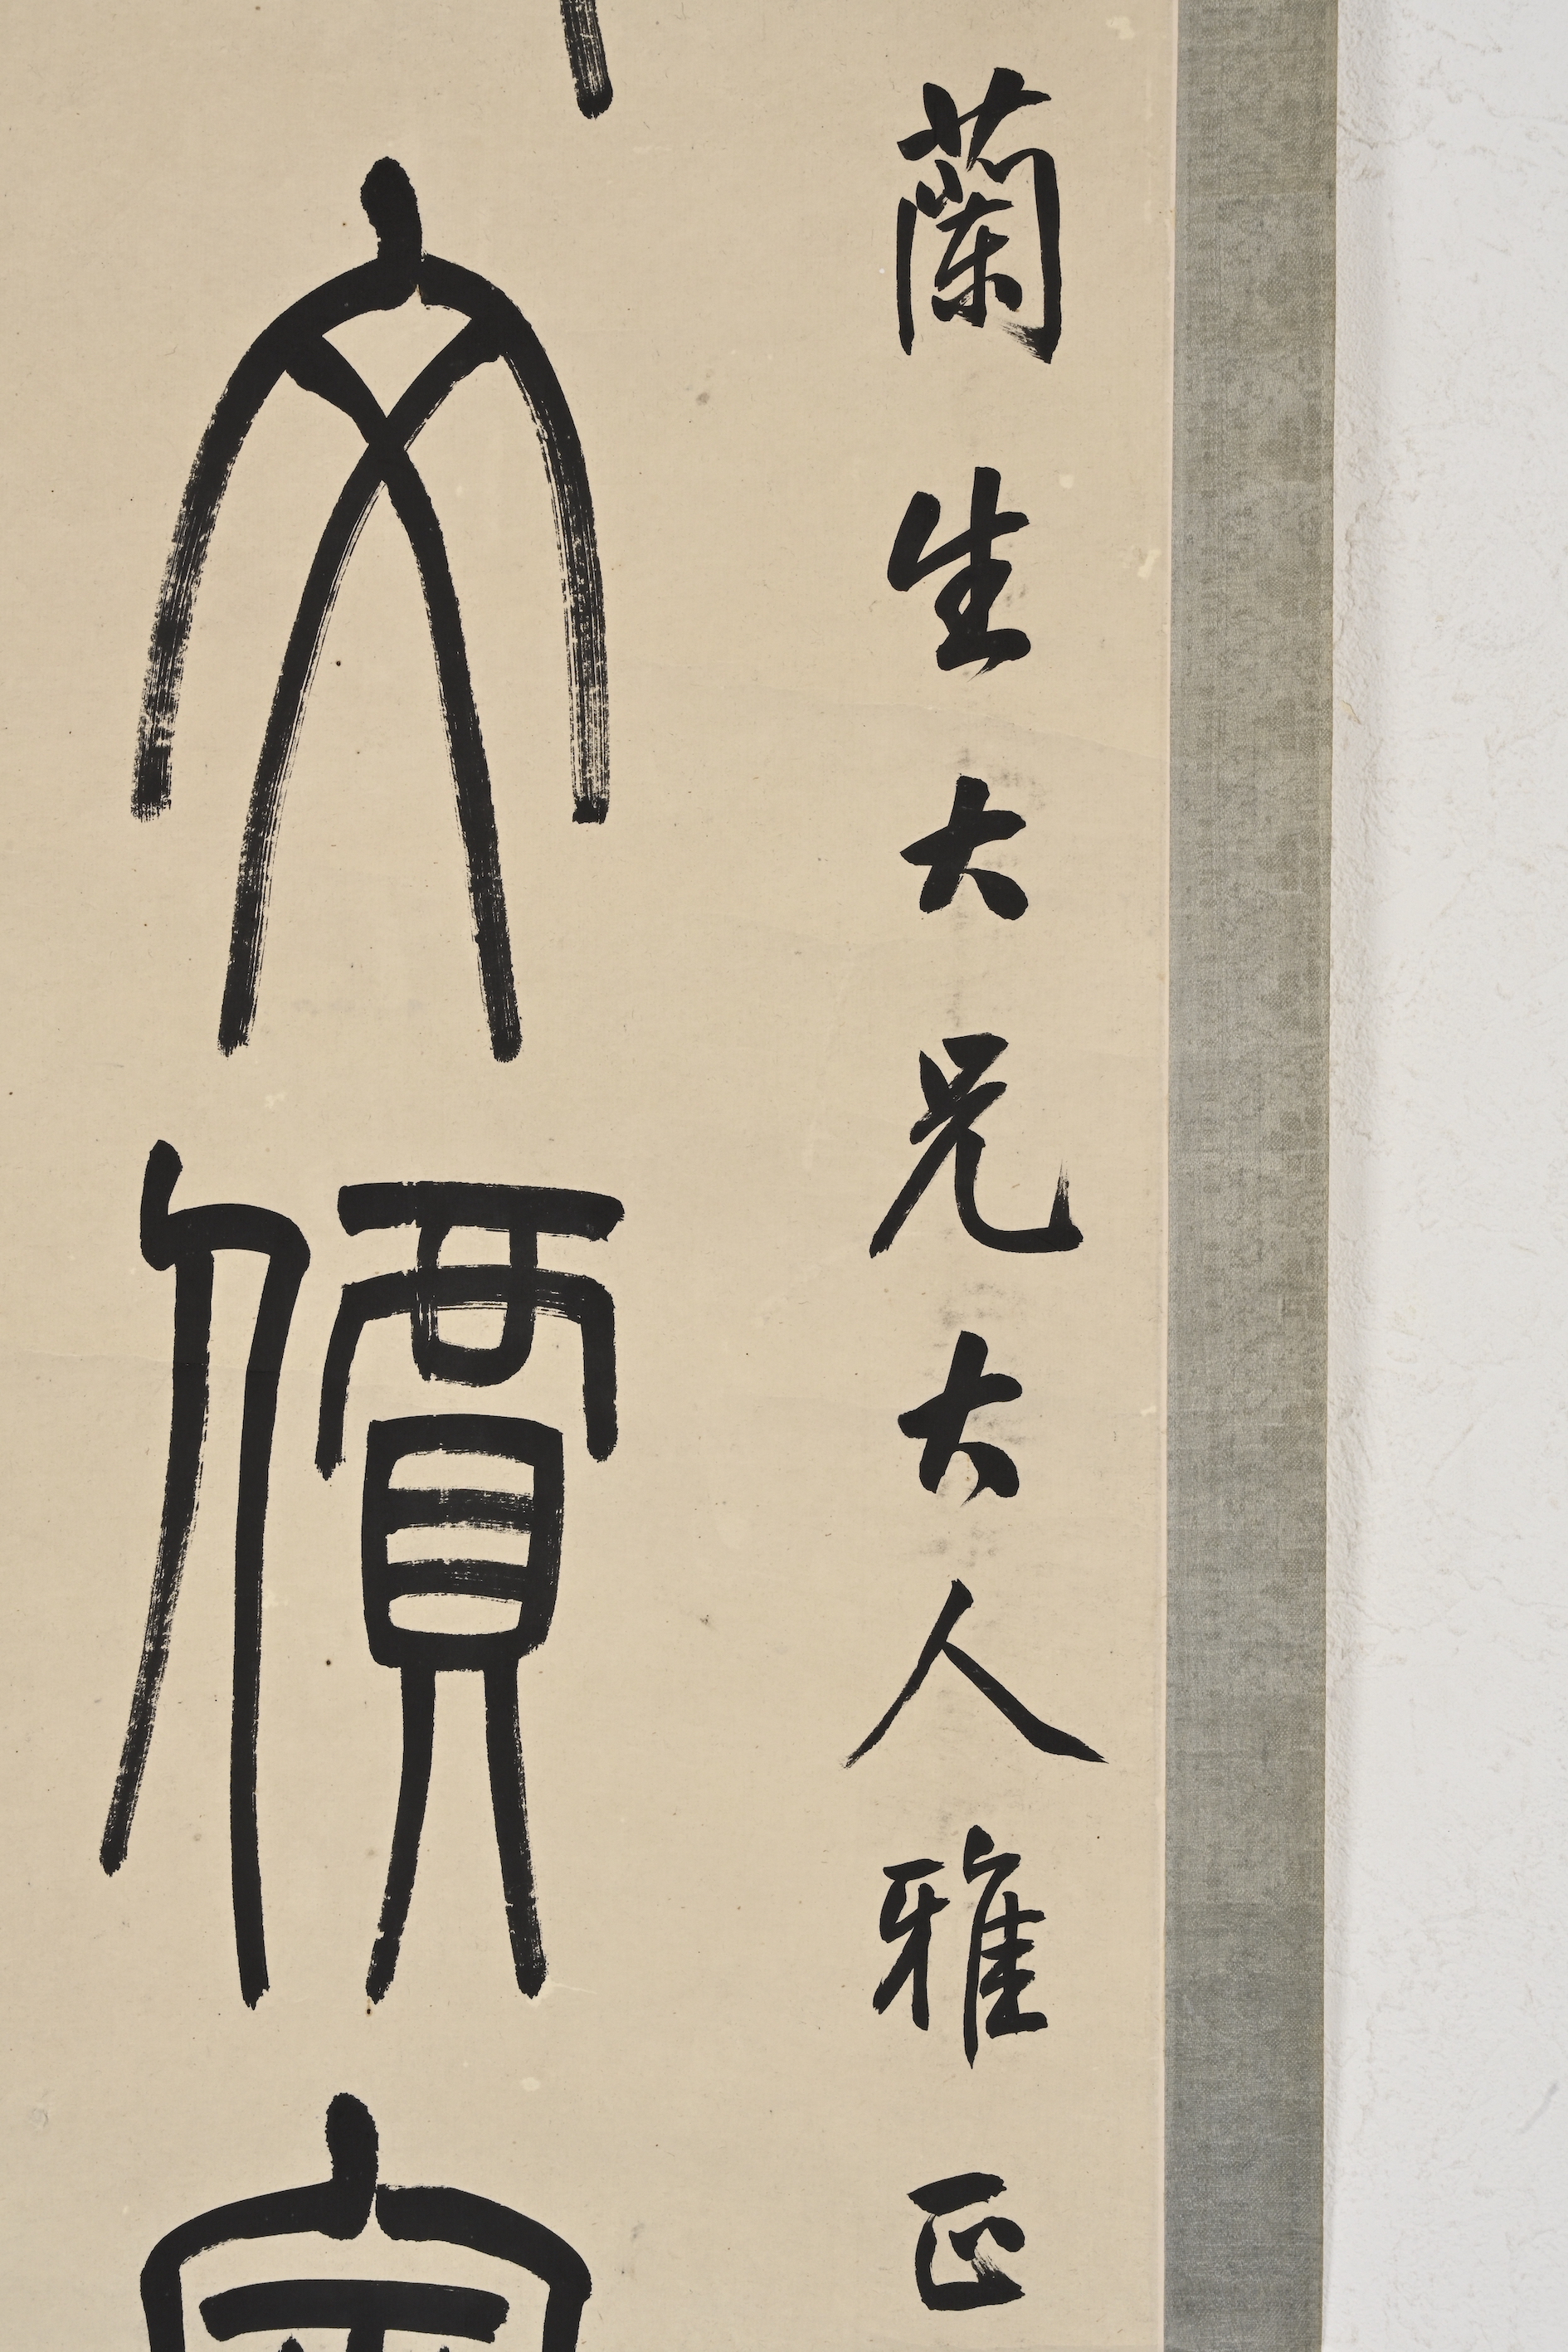 蘭生大兄大人雅正
文價